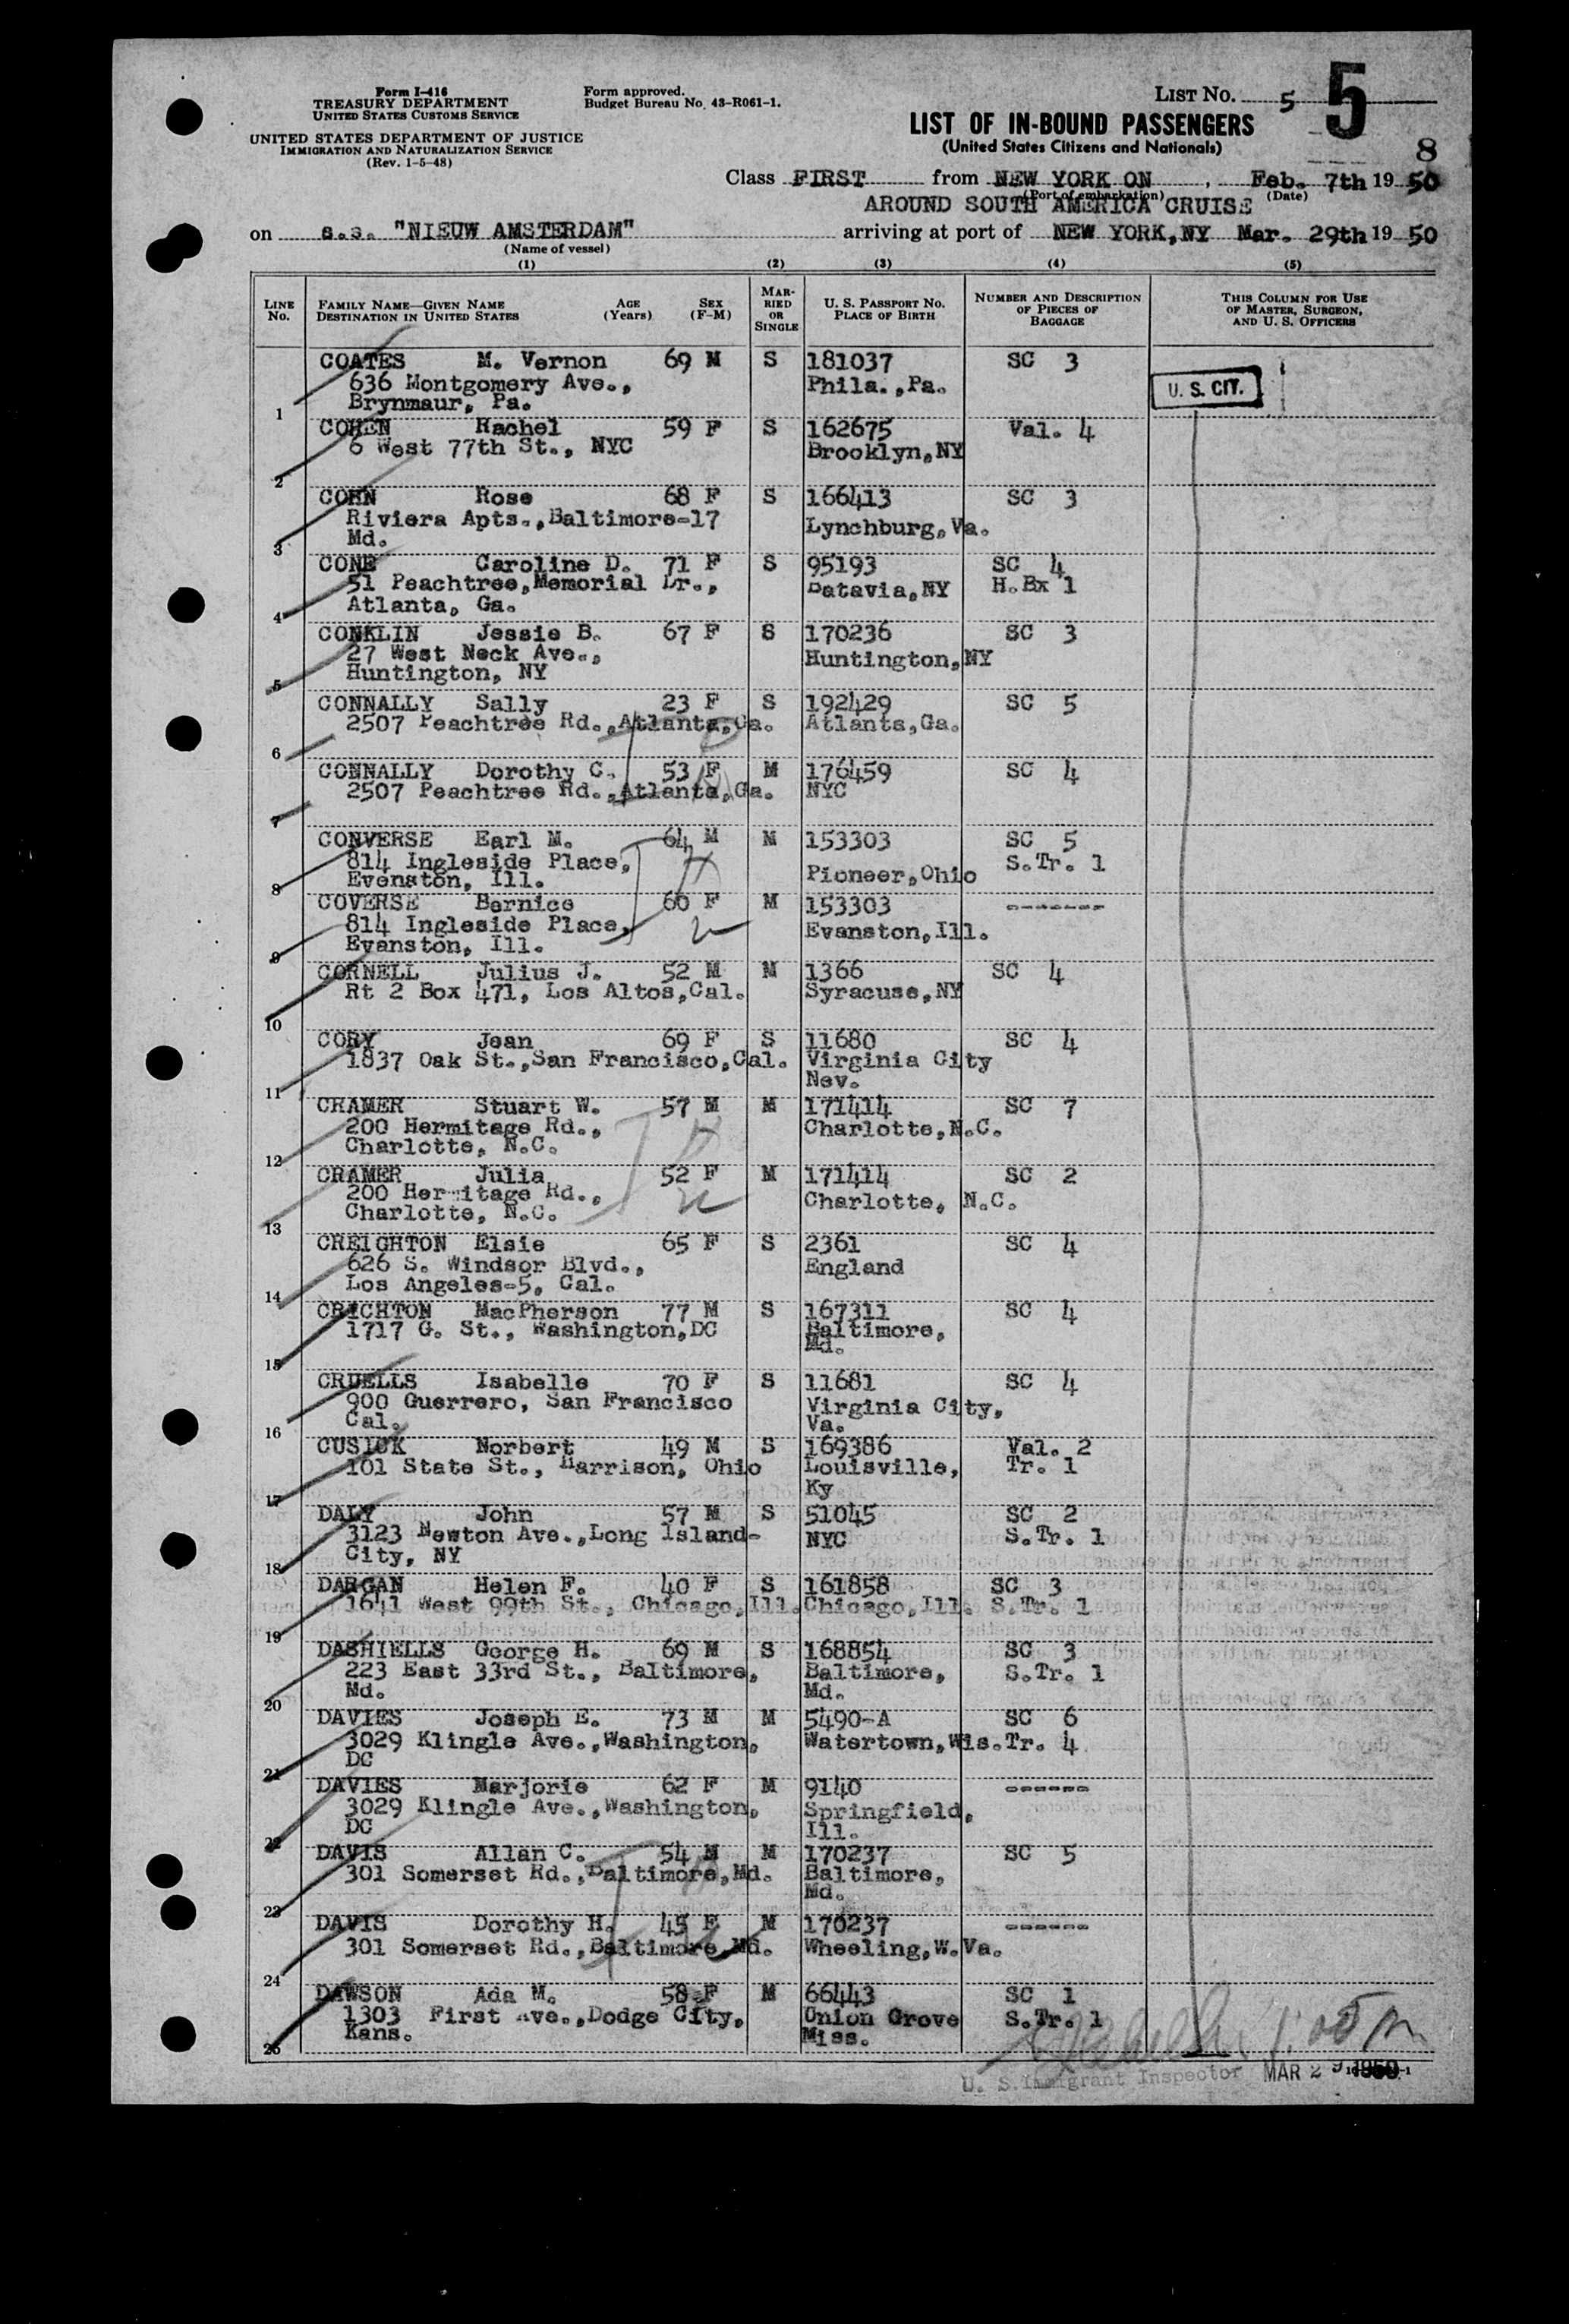 Form I-416
TREASURY DEPARTMENT
UNITED STATES CUSTOMS SERVICE
UNITED STATES DEPARTMENT OF JUSTICE
IMMIGRATION AND NATURALIZATION SERVICE
(Rev. 1-5-48)
Form approved.
Budget Bureau No. 43-R061-1.
LIST NO. 5 5
LIST OF IN-BOUND PASSENGERS
(United States Citizens and Nationals)
8
Class FIRST from NEW YORK ON, Feb. 7th 19 50
(Port of embarkation) (Date)
AROUND SOUTH AMERICA CRUISE
on s.s. "NIEUW AMSTERDAM" arriving at port of NEW YORK,NY Mar. 29th 19 50
(Name of vessel)
(1) (2) (3) (4) (5)
LINE No. FAMILY NAME—GIVEN NAME DESTINATION IN UNITED STATES AGE (Years) SEX (F-M) MARRIED OR SINGLE U. S. PASSPORT NO. PLACE OF BIRTH NUMBER AND DESCRIPTION OF PIECES OF BAGGAGE THIS COLUMN FOR USE OF MASTER, SURGEON, AND U. S. OFFICERS
COATES M. Vernon 69 M S 181037 SC 3
636 Montgomery Ave., Phila.,Pa. U. S. CIT.
1 Brynmaur, Pa.
COHEN Rachel 59 F S 162675 Val. 4
6 West 77th St., NYC Brooklyn,NY
2
COHN Rose 68 F S 166413 SC 3
Riviera Apts.,Baltimore-17 Lynchburg,Va.
3 Md.
CONE Caroline D. 71 F S 95193 SC 4
51 Peachtree,Memorial Dr., Batavia,NY H.Bx 1
4 Atlanta, Ga.
CONKLIN Jessie B. 67 F S 170236 SC 3
27 West Neck Ave., Huntington,NY
5 Huntington, NY
CONNALLY Sally 23 F S 192429 SC 5
2507 Peachtree Rd.,Atlanta,Ga. Atlanta,Ga.
6
CONNALLY Dorothy C. 53 F M 176459 SC 4
2507 Peachtree Rd.,Atlanta,Ga. NYC
7
CONVERSE Earl M. 64 M M 153303 SC 5
814 Ingleside Place, Pioneer,Ohio S.Tr. 1
8 Evenston, Ill.
COVERSE Bernice 60 F M 153303 -------
814 Ingleside Place, Evanston,Ill.
9 Evanston, Ill.
CORNELL Julius J. 52 M M 1366 SC 4
Rt 2 Box 471, Los Altos,Cal. Syracuse,NY
10
CORY Jean 69 F S 11680 SC 4
1837 Oak St.,San Francisco,Cal. Virginia City
11 Nev.
CRAMER Stuart W. 57 M M 171414 SC 7
200 Hermitage Rd., Charlotte,N.C.
12 Charlotte, N.C.
CRAMER Julia 52 F M 171414 SC 2
200 Hermitage Rd., Charlotte, N.C.
13 Charlotte, N.C.
CREIGHTON Elsie 65 F S 2361 SC 4
626 S. Windsor Blvd., England
14 Los Angeles-5, Cal.
CRICHTON MacPherson 77 M S 167311 SC 4
1717 G. St., Washington,DC Baltimore,
15 Md.
CRUELLS Isabelle 70 F S 11681 SC 4
900 Guerrero, San Francisco Virginia City,
16 Cal. Va.
CUSICK Norbert 49 M S 169386 Val. 2
101 State St., Harrison, Ohio Louisville, Tr. 1
17 Ky
DALY John 57 M S 51045 SC 2
3123 Newton Ave.,Long Island- NYC S.Tr. 1
18 City, NY
DARGAN Helen F. 40 F S 161858 SC 3
1641 West 99th St., Chicago,Ill. Chicago,Ill. S.Tr. 1
19
DASHIELLS George H. 69 M S 168854 SC 3
223 East 33rd St., Baltimore, Baltimore, S.Tr. 1
20 Md. Md.
DAVIES Joseph E. 73 M M 5490-A SC 6
3029 Klingle Ave.,Washington, Watertown,Wis. Tr. 4
21 DC
DAVIES Marjorie 62 F M 9140 ------
3029 Klingle Ave.,Washington, Springfield,
22 DC Ill.
DAVIS Allan C. 54 M M 170237 SC 5
301 Somerset Rd.,Baltimore,Md. Baltimore,
23 Md.
DAVIS Dorothy H. 45 F M 170237 ------
301 Somerset Rd.,Baltimore,Md. Wheeling,W.Va.
24
DAWSON Ada M. 58 F M 66443 SC 1
1303 First Ave.,Dodge City, Union Grove S.Tr. 1
25 Kans. Miss.
U. S. Immigrant Inspector MAR 29 1950